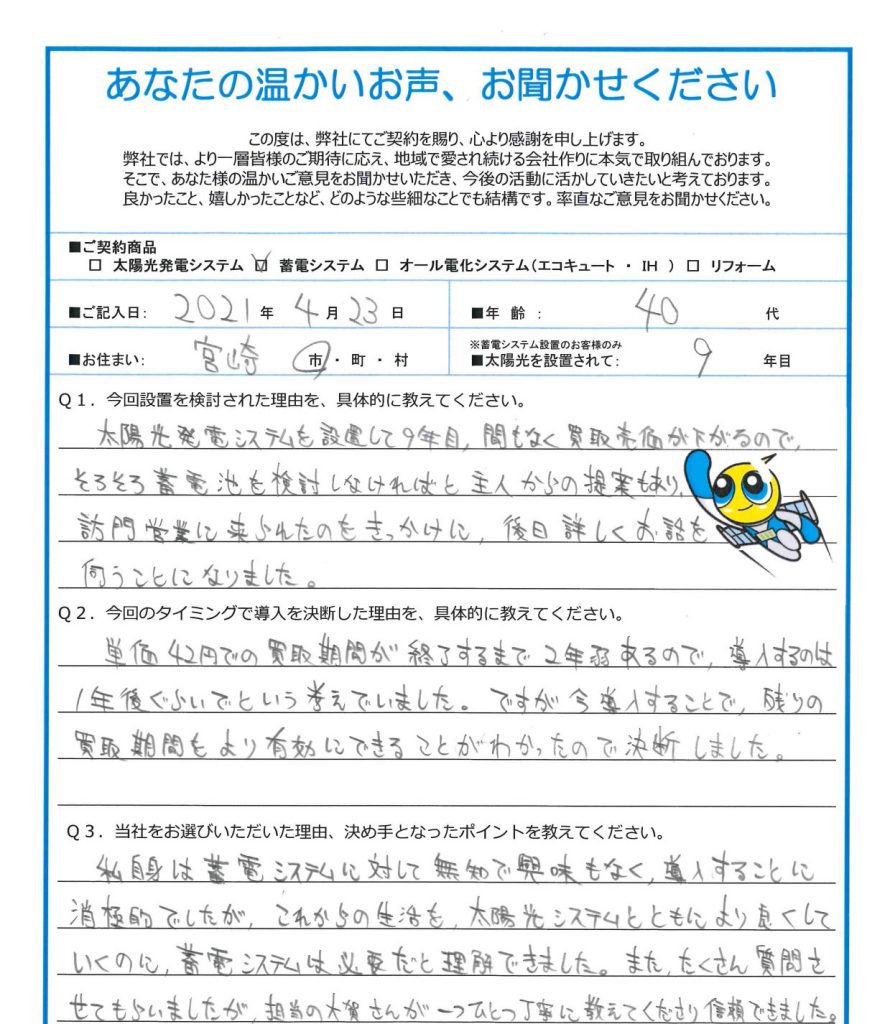 あなたの温かいお声、お聞かせください
この度は、弊社にてご契約を賜り、心より感謝を申し上げます。
弊社では、より一層皆様のご期待に応え、地域で愛され続ける会社作りに本気で取り組んでおります。
そこで、あなた様の温かいご意見をお聞かせいただき、今後の活動に活かしていきたいと考えております。
良かったこと、嬉しかったことなど、どのような些細なことでも結構です。率直なご意見をお聞かせください。
■ご契約商品
□ 太陽光発電システム ☑ 蓄電システム □ オール電化システム(エコキュート ・ IH ) □ リフォーム
■ご記入日: 2021 年 4 月 23 日 ■年 齢 : 40 代
※蓄電システム設置のお客様のみ
■お住まい: 宮崎 市・町・村 ■太陽光を設置されて: 9 年目
Q1. 今回設置を検討された理由を、具体的に教えてください。
太陽光発電システムを設置して9年目, 間もなく買取売価が下がるので,
そろそろ蓄電池を検討しなければと主人からの提案もあり,
訪門営業に来られたのをきっかけに, 後日詳しくお話を
伺うことになりました。
Q2. 今回のタイミングで導入を決断した理由を、具体的に教えてください。
単価42円での買取期間が終了するまで2年弱あるので, 導入するのは
1年後ぐらいでという考えでいました。ですが今導入することで, 残りの
買取期間をより有効にできることがわかったので決断しました。
Q3. 当社をお選びいただいた理由、決め手となったポイントを教えてください。
私自身は蓄電システムに対して無知で興味もなく, 導入することに
消極的でしたが, これからの生活を, 太陽光システムとともにより良くして
いくのに, 蓄電システムは必要だと理解できました。また, たくさん質問さ
せてもらいましたが, 担当の大賀さんが一つひとつ丁寧に教えてくださり信頼できました。